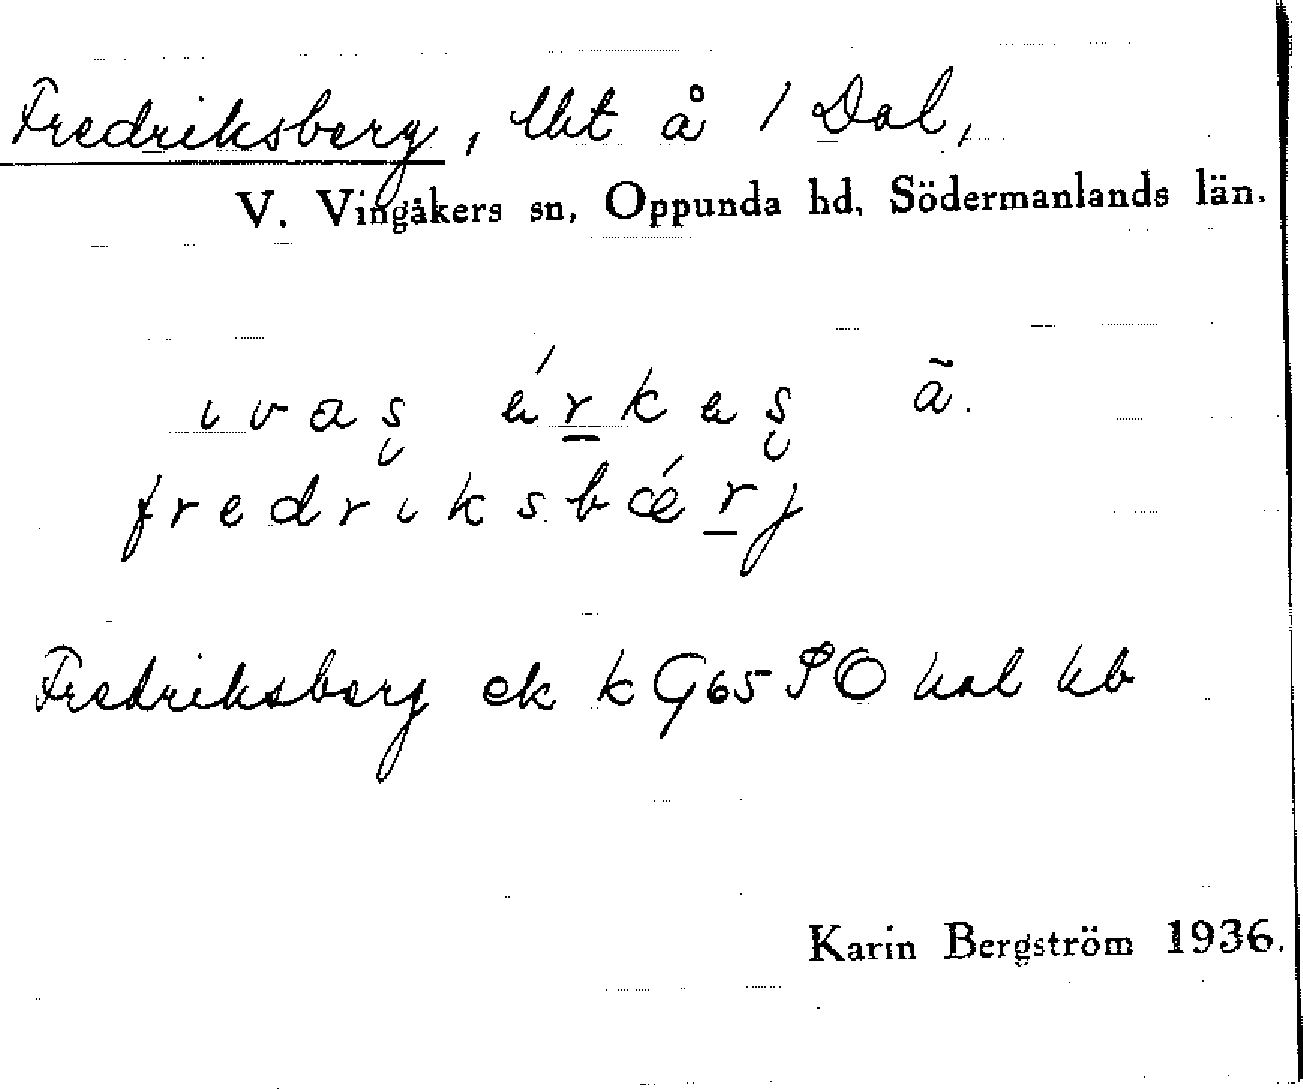 Fredriksberg, lht å 1 Dal,
V. Vingåkers sn, Oppunda hd, Södermanlands län.
ɩ v a s̬ é r̲ k e s̬ ã.
f r e d r ɩ k s b ǽ r̲ j
Fredriksberg ek k G65 SO hal hb
Karin Bergström 1936.